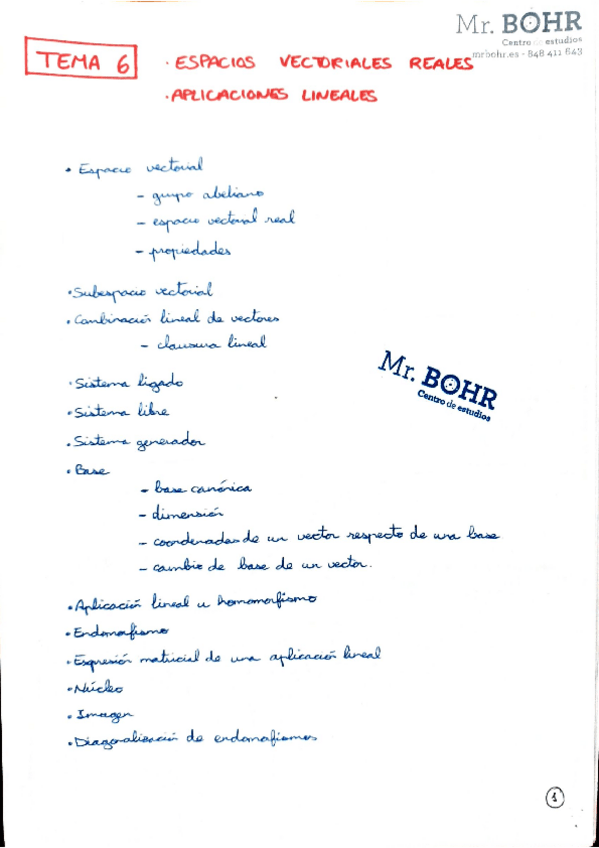 Mr. BOHR
Centro de estudios
mrbohr.es - 848 411 643
TEMA 6
· ESPACIOS VECTORIALES REALES
· APLICACIONES LINEALES
• Espacio vectorial
- grupo abeliano
- espacio vectorial real
- propiedades
• Subespacio vectorial
• Combinación lineal de vectores
- clausura lineal
• Sistema ligado
• Sistema libre
• Sistema generador
• Base
- base canónica
- dimensión
- coordenadas de un vector respecto de una base
- cambio de base de un vector.
• Aplicación lineal u homomorfismo
• Endomorfismo
• Expresión matricial de una aplicación lineal
• Núcleo
• Imagen
• Diagonalización de endomorfismos
Mr. BOHR
Centro de estudios
1